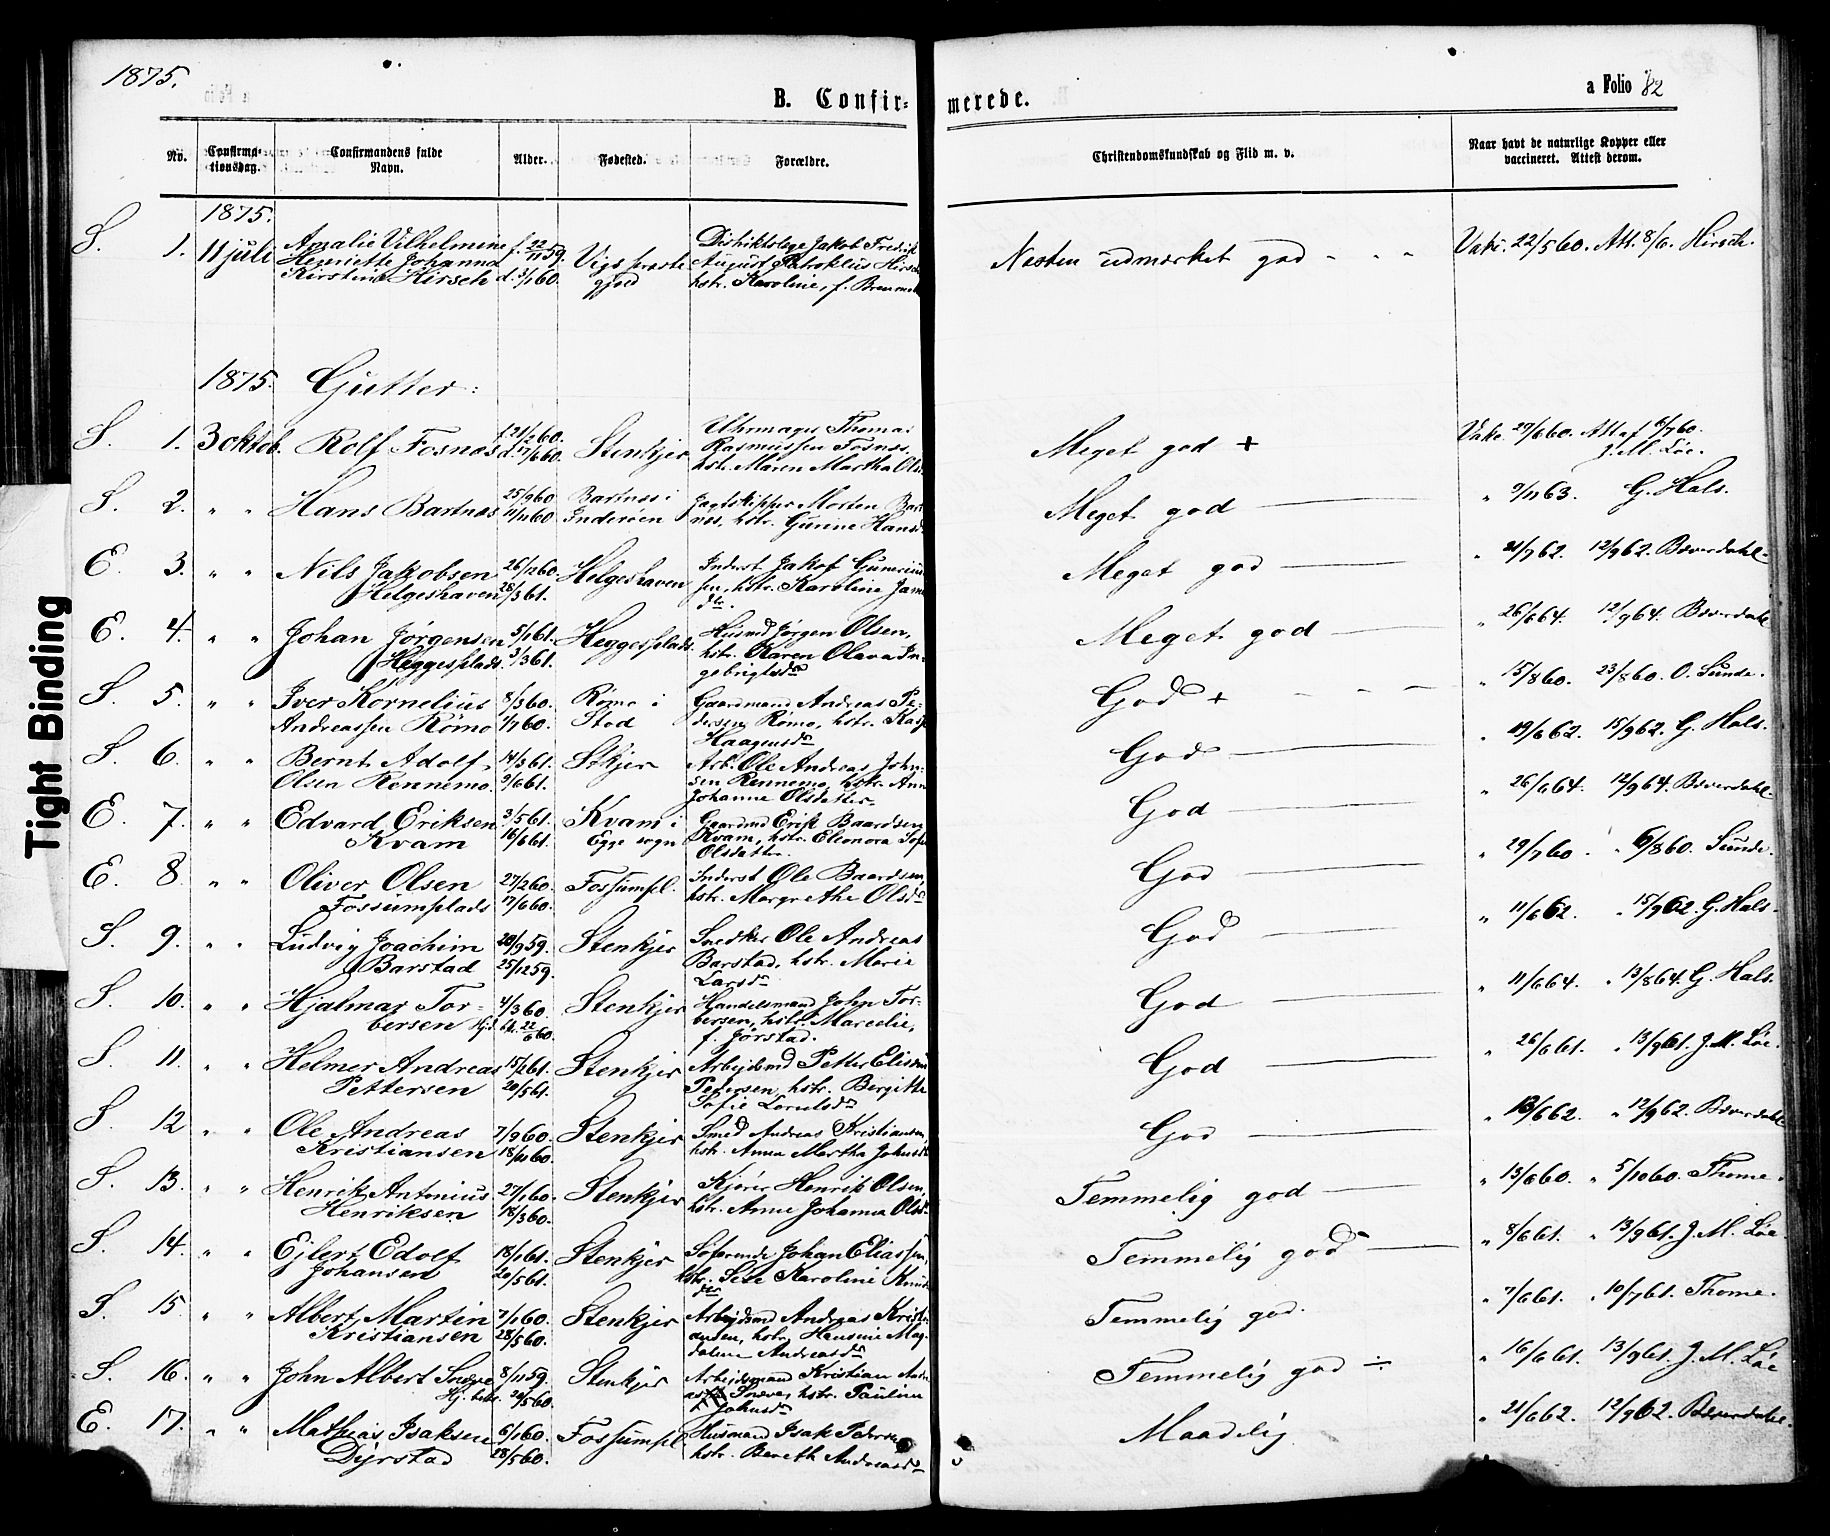 1875.
B. Confir=
merede.
a Folio 82
No.
Confirma-
tionsdag.
Confirmandens fulde
Navn.
Alder.
Fødested.
Forældre.
Christendomskundskab og Flid m. v.
Naar havt de naturlige Kopper eller
vaccineret. Attest derom.
1875.
S. 1. 11 juli Amalie Vilhelmine f. 22/11 59. Distriktslæge Jakob Fredrik
Henriette Johanna Vigs præste August Patroklus Hirsch
Kirstine Hirsch d. 3/1 60. gjeld hstr. Karoline, f.
Næsten udmærket god - - - Vakc. 22/5 60. Att. 8/6. Hirsch.
1875. Gutter:
S. 1. 3 oktob. Rolf Fosnæs 60. d. 17/6 60. Stenkjer Uhrmager Thomas
Rasmussen Fosnæs,
hstr. Maren Martha Ols
Meget god + Vakc. 27/6 60. Att af 6/7 60.
J. M. Löe.
S. 2. " " Hans Bartnæs 25/9 60 11/11 60 Bartnæs i Jagtskipper Morten Bart
Inderøen næs, hstr. Gurine Hansd
Meget god " 9/11 63. G. Hals.
E. 3. " " Nils Jakobsen 26/12 60. Helgeshaven Inderst Jakob Gunerius
Helgeshaven 28/3 61. sen, hstr. Karoline Jans
dtr.
Meget god " 21/7 62. 12/9 62. Bæverdahl.
E. 4. " " Johan Jørgensen 5/1 61. Heggesplads Husmd Jørgen Olsen,
Heggesplads 3/3 61. hstr. Karen Olava In-
gebrigtsdr
Meget god " 26/6 64. 12/9 64. Bæverdahl
S. 5. " " Iver Kornelius 8/3 60. Römo i Gaardmand Andreas Pe-
Andreassen Römo 1/7 60. Stod dersen Römo, hstr.
Haagensdr
God + - - - " 15/8 60. 23/8 60. O. Sunde.
S. 6. " " Bernt Adolf 14/3 61. Stkjer Arb. Ole Andreas John-
Olsen Rennemo. 9/6 61. sen Rennemo, hstr. Ann
Johanne Olsdatter
God " 19/6 62. 15/9 62. G. Hals.
E. 7. " " Edvard Eriksen 3/5 61. Kvam i Gaardmd Erik Baardsen
Kvam 16/6 61. Egge sogn Kvam, hstr. Eleonora Sofie
Olsdatter.
God " 26/6 64. 12/9 64. Bæverdahl.
E. 8. " " Oliver Olsen 27/2 60. Fossumpl. Inderst Ole Baardsen,
Fossumplads 17/6 60. hstr. Margrethe Olsdr
God " 29/7 60. " 6/8 60. Sunde.
S. 9. " " Ludvig Joachim 28/9 59. Stenkjer Snedker Ole Andreas
Barstad 25/12 59. Barstad, hstr. Marie
Larsdr
God " 11/6 62. " 15/9 62. G. Hals.
S. 10. " " Hjalmar Tor- 4/3 60. Stenkjer Handelsmand John Tor-
bersen Hjd. 22/6 60. bersen, hstr. Marcelie,
f. Jørstad.
God " 11/6 64. " 13/8 64. G. Hals.
S. 11. " " Helmer Andreas 15/2 61. Stenkjer Arbejdsmd Petter Eliseus
Pettersen 20/5 61. Pedersen, hstr. Bergitte
Sofie Lorntsdr
God " 26/6 61. " 13/9 61. J. M. Löe.
S. 12 " " Ole Andreas 7/9 60. Stenkjer Smed Andreas Kristiansen,
Kristiansen 18/11 60. hstr. Anna Martha Johnsd
God " 18/6 62. " 12/9 62. Bæverdahl
S. 13. " " Henrik Antonius 27/1 60. Stenkjer Kjører Henrik Olsen,
Henriksen 18/3 60. hstr. Anne Johanna Olsdr
Temmelig god " 13/6 60. " 5/10 60. Thome.
S. 14. " " Ejlert Edolf 18/1 61. Stenkjer Søfarende Johan Eliassen,
Johansen 20/5 61. hstr. Sise Karoline Knuds
dtr
Temmelig god " 8/6 61. " 13/9 61. J. M. Löe.
S. 15. " " Albert Martin 7/1 60. Stenkjer Arbejdsmd Andreas Kristi
Kristiansen 28/5 60. ansen, hstr. Hansine Mag-
dalene Andreasdr
Temmelig god. " 7/6 61. " 10/7 61. Thome.
S. 16. " " John Albert Snæve 8/11 59. Stenkjer Arbejdsmand Kristian
Hj. 29/5 60. Snæve, hstr. Pauline
Johnsdr
Temmelig god ÷ " 16/6 61. 13/9 61. J. M. Löe
E. 17. " " Mathias Isaksen 6/1 60. Fossumpl Husmand Isak Pedersen
Dyrstad 28/5 60. hstr. Bereth Andreasdr
Maadelig " 21/6 62. 12/9 62. Bæverdahl.
Tight Binding